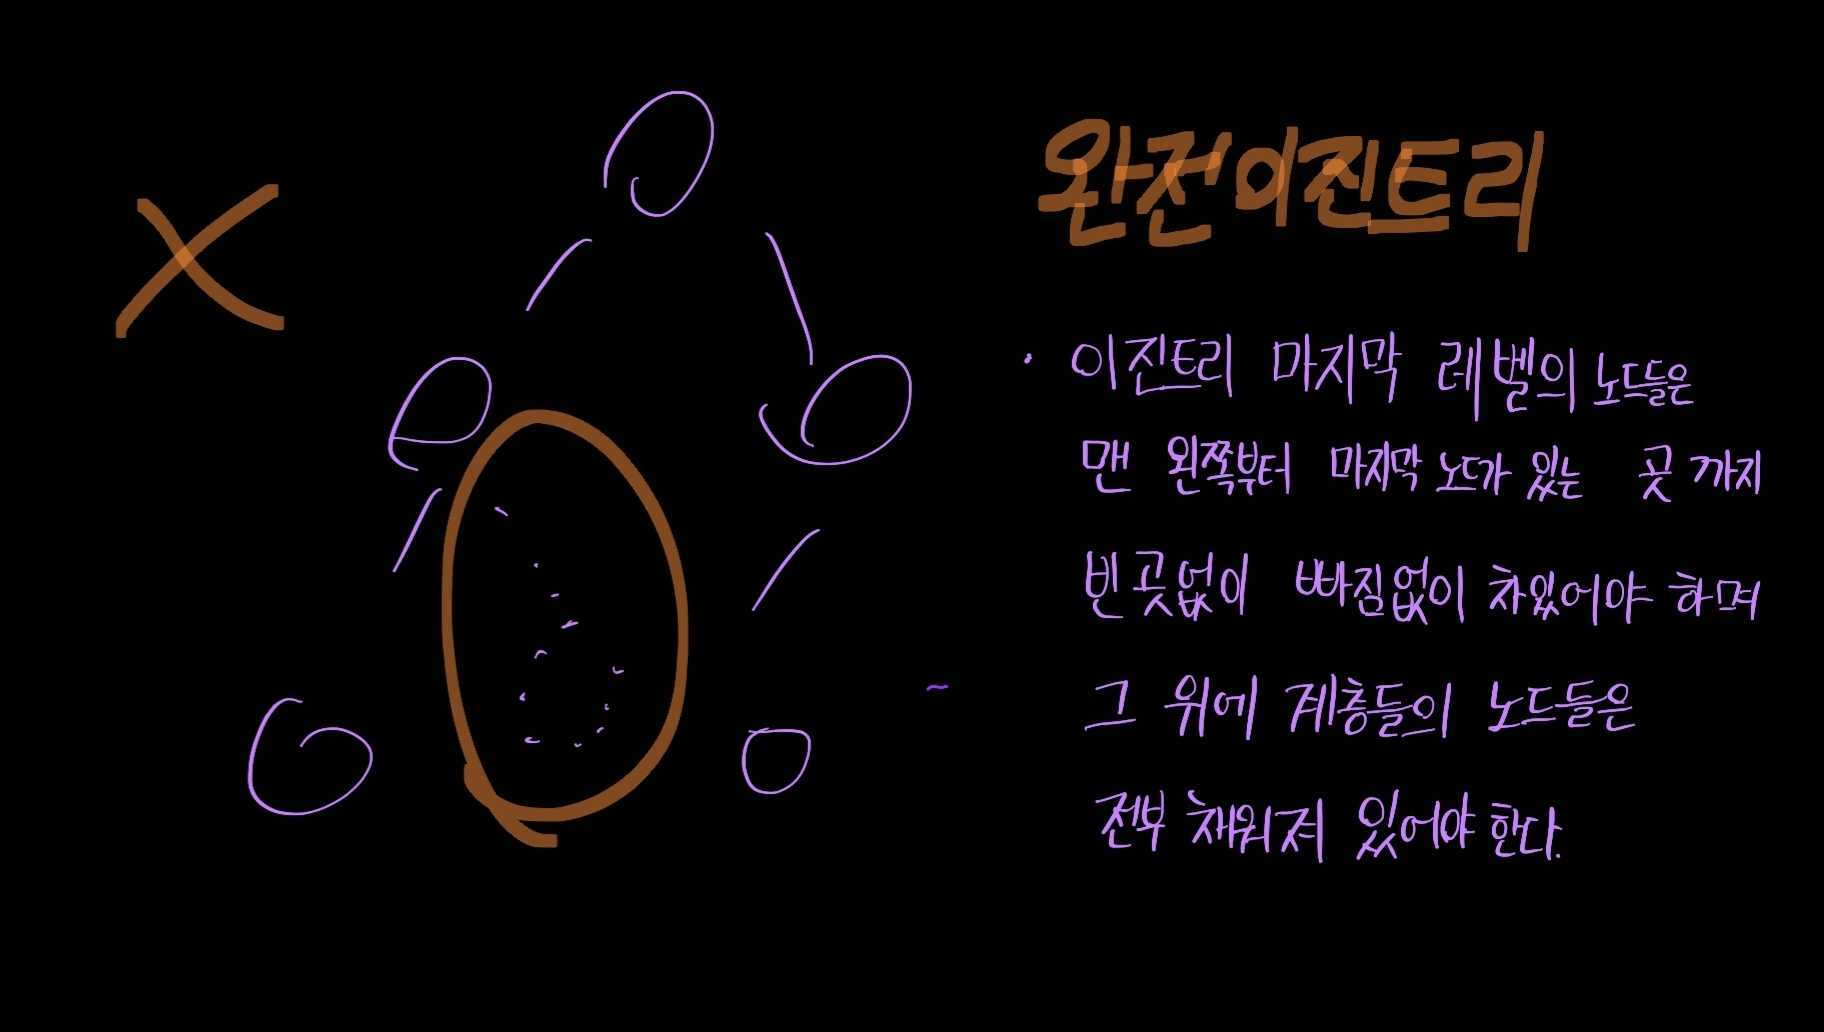 완전이진트리
· 이진트리 마지막 레벨의 노드들은
맨 왼쪽부터 마지막 노드가 있는 곳 까지
빈곳없이 빠짐없이 차있어야 하며
그 위에 계층들의 노드들은
전부 채워져 있어야 한다.